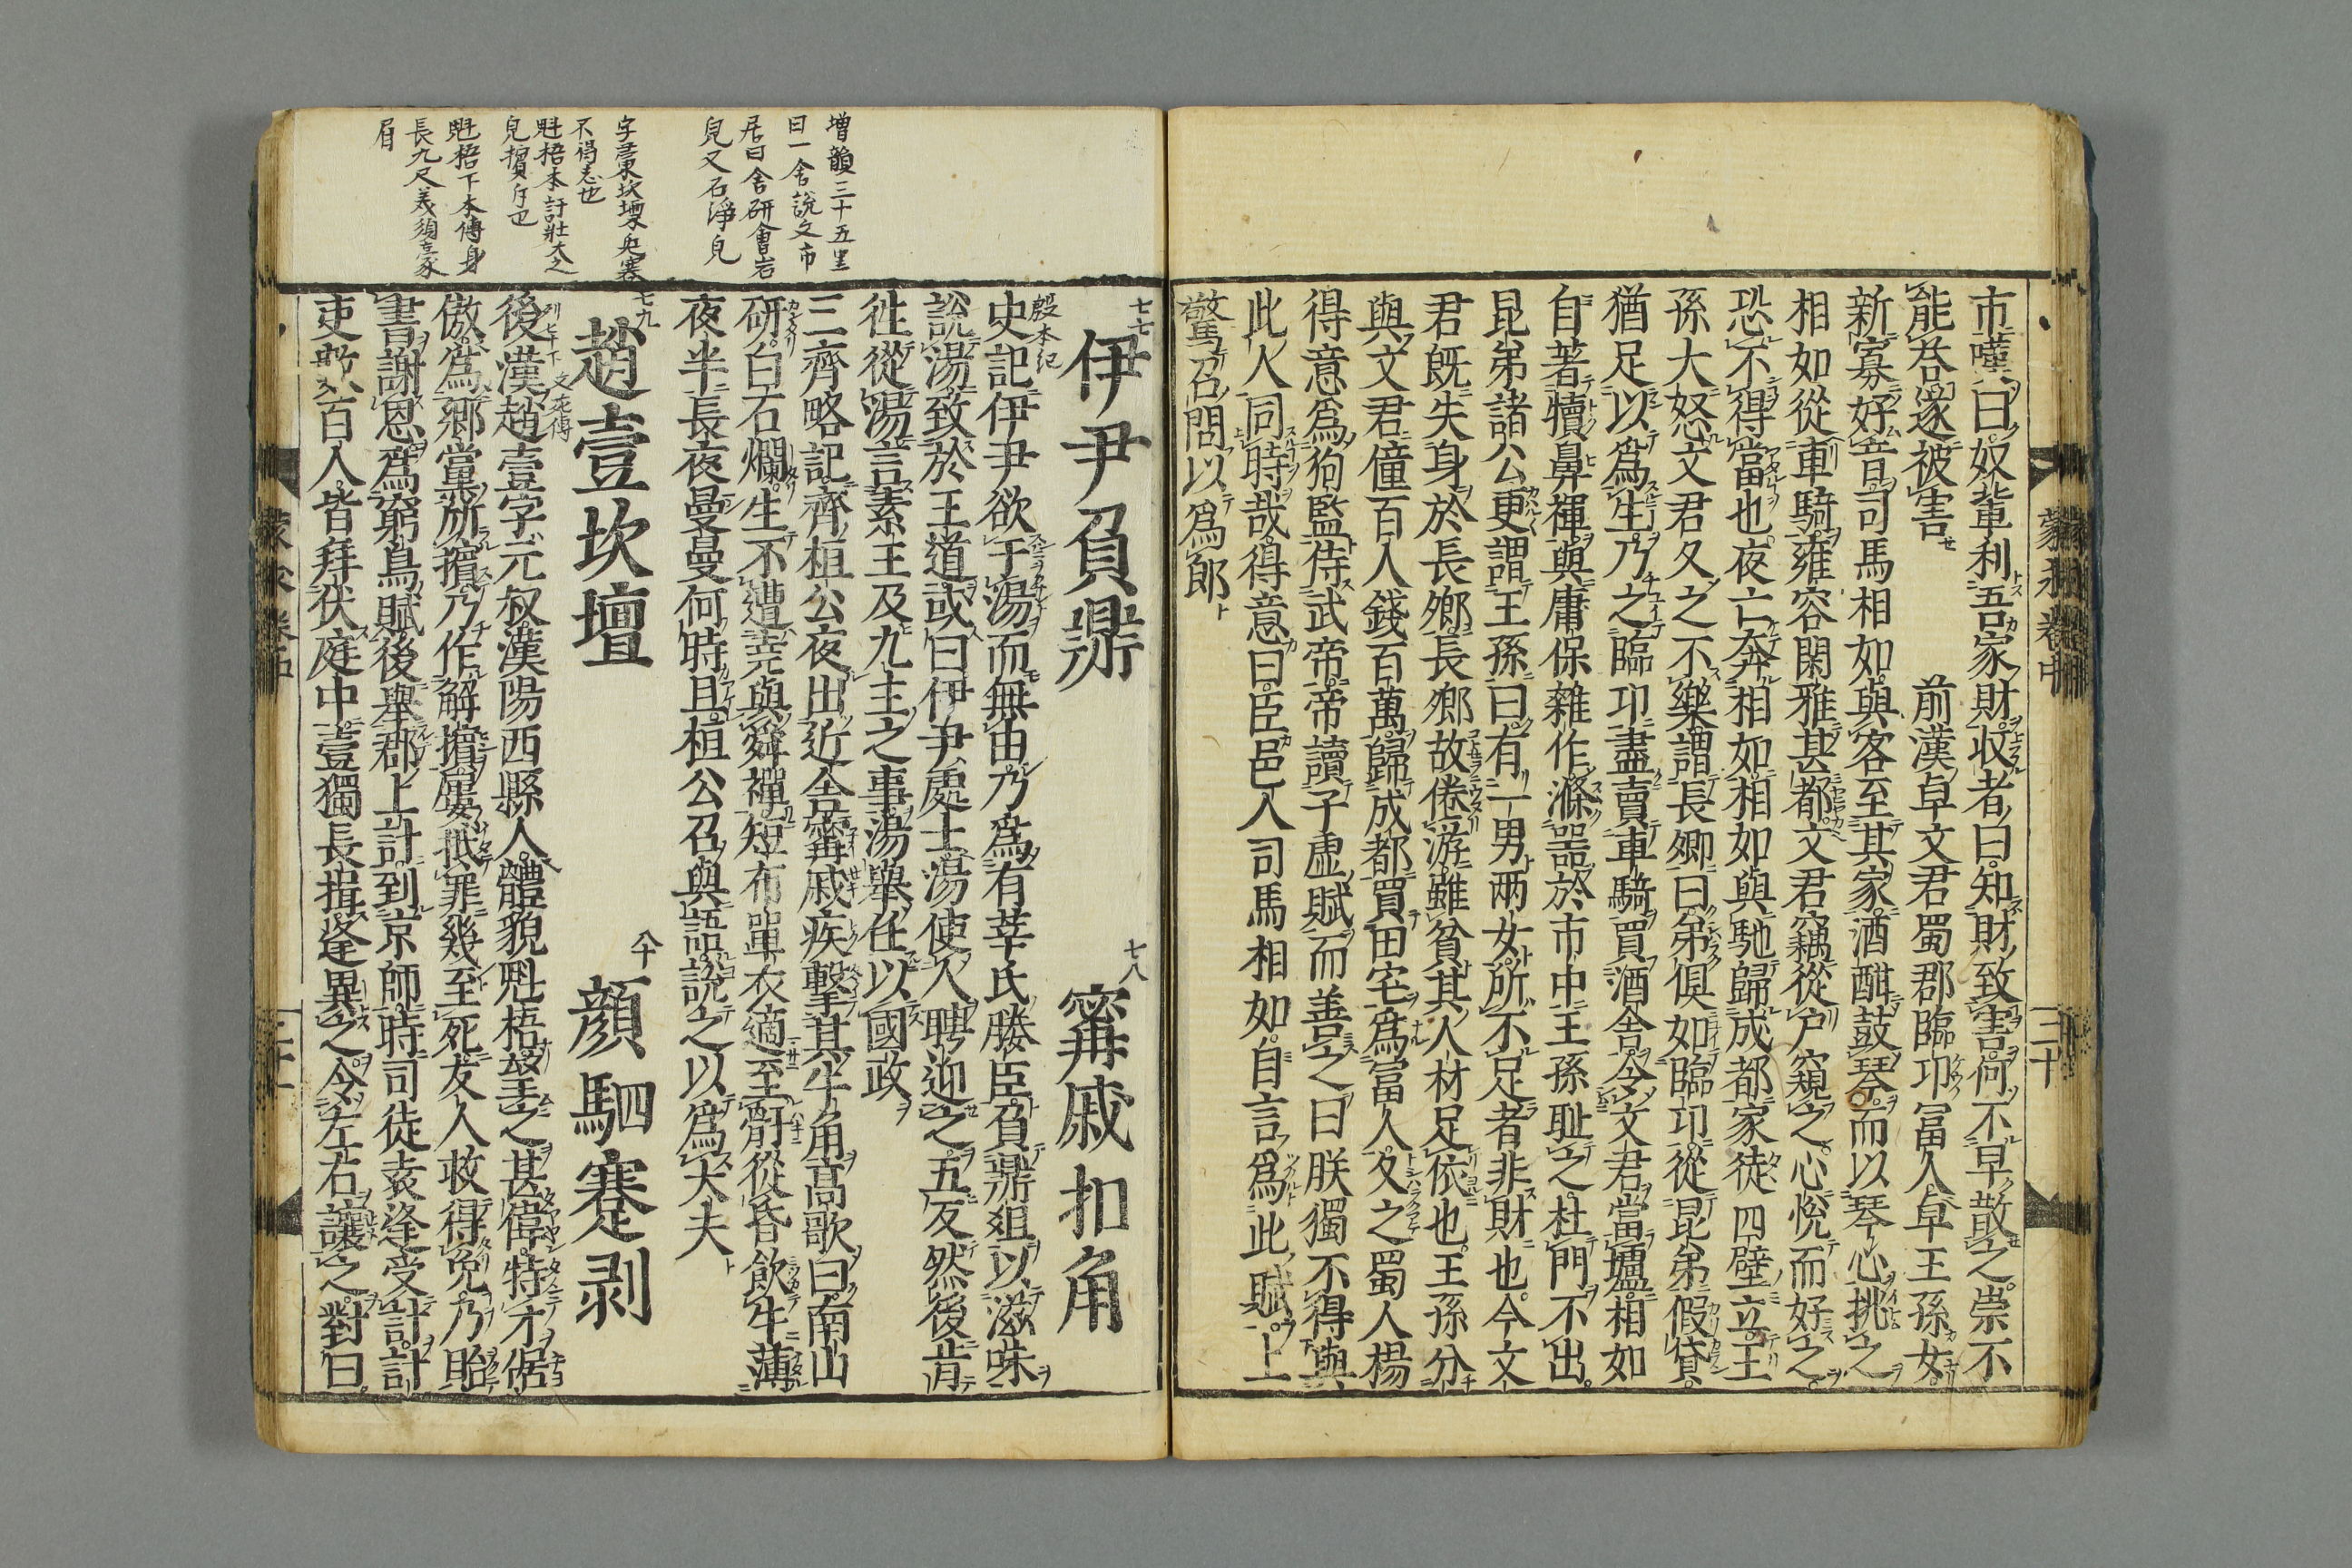 市嘆曰奴輩利吾家財収者曰知財致害何不早散之崇不
能荅遂被害　前漢卓文君蜀郡臨卭冨人卓王孫女
新寡好音司馬相如與客至其家酒酣鼓琴而以琴心挑之
相如從車騎雍容閑雅甚都文君竊從户窺之心悦而好之
恐不得當也夜亡奔相如相如與馳歸成都家徒四壁立王
孫大怒文君久之不樂謂長卿曰弟俱如臨卭從昆弟假貸
猶足以爲生乃之臨卭盡賣車騎買酒舎令文君當壚相如
自著犢鼻褌與庸保雜作滌噐於市中王孫耻之杜門不出
昆弟諸公更謂王孫曰有一男兩女所不足者非財也今文
君既失身於長卿長卿故倦游雖貧其人材足依也王孫分
與文君僮百人錢百萬歸成都買田宅爲冨人久之蜀人楊
得意爲狗監侍武帝帝讀子虚賦而善之曰朕獨不得與
此人同時哉得意曰臣邑人司馬相如自言爲此賦上
驚召問以爲郎
蒙求卷中
三十
七七
伊尹負鼎
七八
甯戚扣角
殷本紀
史記伊尹欲于湯而無由乃爲有莘氏媵臣負鼎俎以滋味
説湯致於王道或曰伊尹處士湯使人聘迎之五反然後肯
徃從湯言素王及九主之事湯舉任以國政
三齊略記齊桓公夜出近舎甯戚疾擊其牛角高歌曰南山
研白石爛生不遭堯與舜禪短布單衣適至骭從昏飲牛薄
夜半長夜曼曼何時旦桓公召與語説之以爲大夫
七九
趙壹坎壈
八十
顔駟蹇剥
列七十下 文苑傳
後漢趙壹字元叔漢陽西縣人體貌魁梧望之甚偉特才倨
傲爲郷黨所擯乃作解擯屢抵罪幾至死友人救得免乃貽
書謝恩爲窮鳥賦後舉郡上計到京師時司徒袁逢受計計
吏數百人皆拜伏庭中壹獨長揖逢異之令左右讓之對曰
増韻三十五里
曰一舎説文市
居曰舎研會岩
皃又石淨皃
字彙坎壈屯蹇
不得志也
魁梧本註壯大之
皃擯斥也
魁梧下本傳身
長九尺美須豪
眉